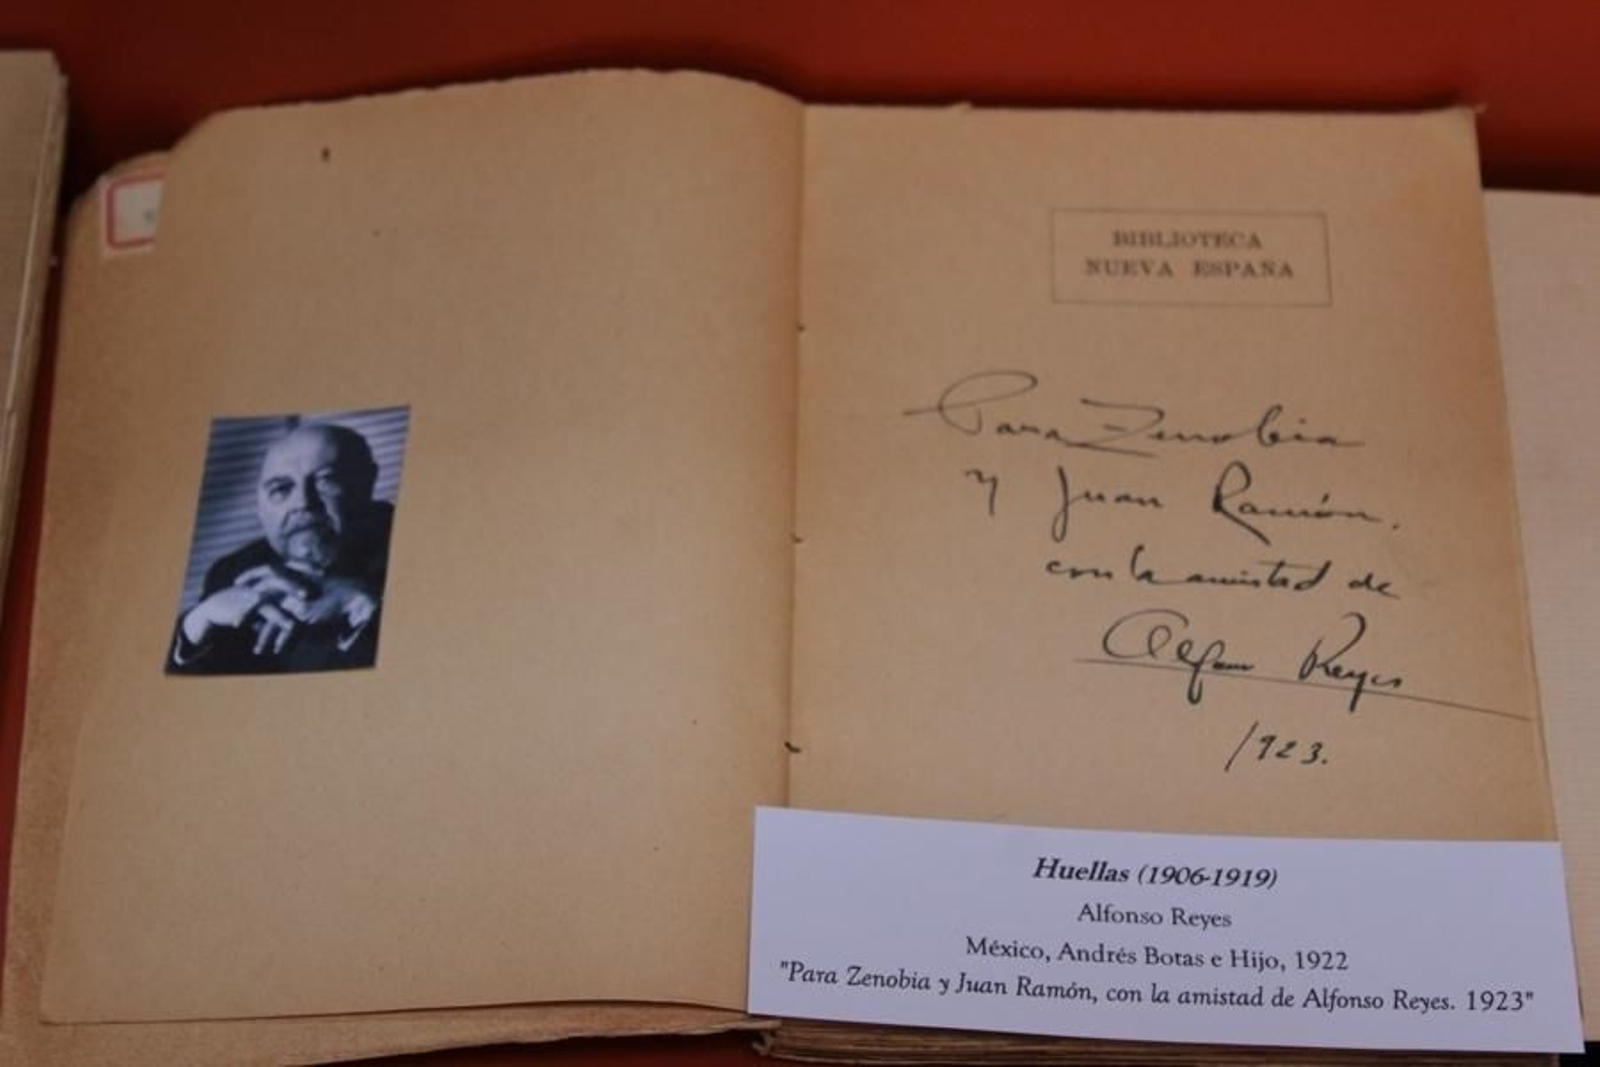 BIBLIOTECA
NUEVA ESPAÑA
Para Zenobia
y Juan Ramón,
con la amistad de
Alfonso Reyes
1923.
Huellas (1906-1919)
Alfonso Reyes
México, Andrés Botas e Hijo, 1922
"Para Zenobia y Juan Ramón, con la amistad de Alfonso Reyes. 1923"